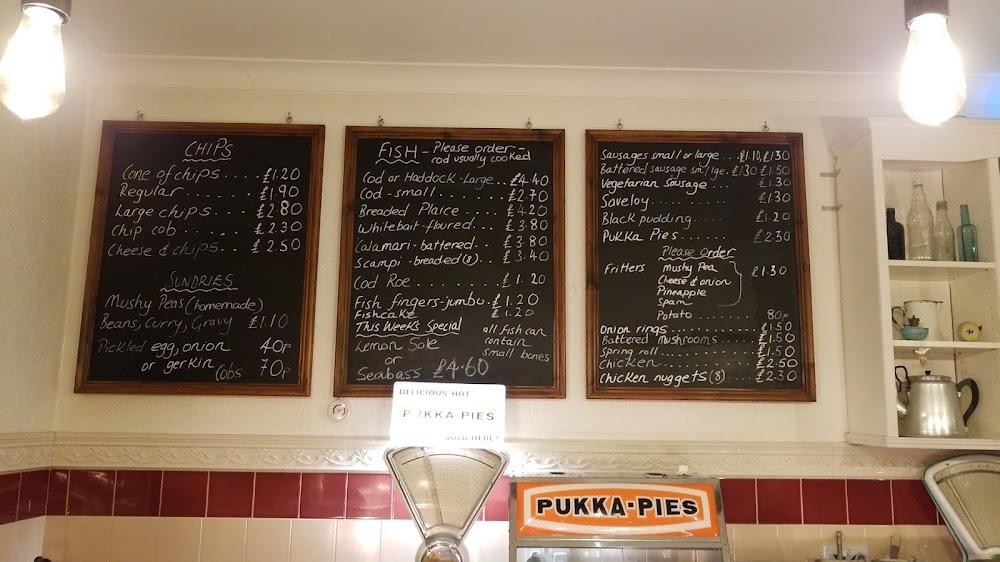 CHIPS
Cone of chips.... £1.20
Regular........ £1.90
Large chips.... £2.80
Chip cob.... £2.30
Cheese & chips.... £2.50
SUNDRIES
Mushy Peas (homemade)
Beans, Curry, Gravy £1.10
Pickled egg, onion 40p
or gerkin Cobs 70p
FISH - Please order -
cod usually cooked
Cod or Haddock - Large... £4.40
Cod - small....... £2.70
Breaded Plaice.... £4.20
Whitebait - floured... £3.80
Calamari - battered... £3.80
Scampi - breaded (8).. £3.40
Cod Roe £1.20
Fish fingers - jumbo. £1.20
Fishcake £1.20
This Week's Special
Lemon Sole
or
Seabass £4.60
all fish can
contain
small bones
Sausages small or large... £1.10, £1.30
Battered sausage sm/lge. £1.30 £1.50
Vegetarian Sausage... £1.30
Saveloy......... £1.30
Black pudding.... £1.20
Pukka Pies..... £2.30
Please Order
Fritters Mushy Pea
Cheese & onion £1.30
Pineapple
Spam
Potato........ 80p
Onion rings............ £1.50
Battered mushrooms..... £1.50
Spring roll........... £1.50
Chicken............ £2.50
Chicken nuggets (8)..... £2.30
DELICIOUS HOT
PUKKA PIES
SOLD HERE!
PUKKA-PIES